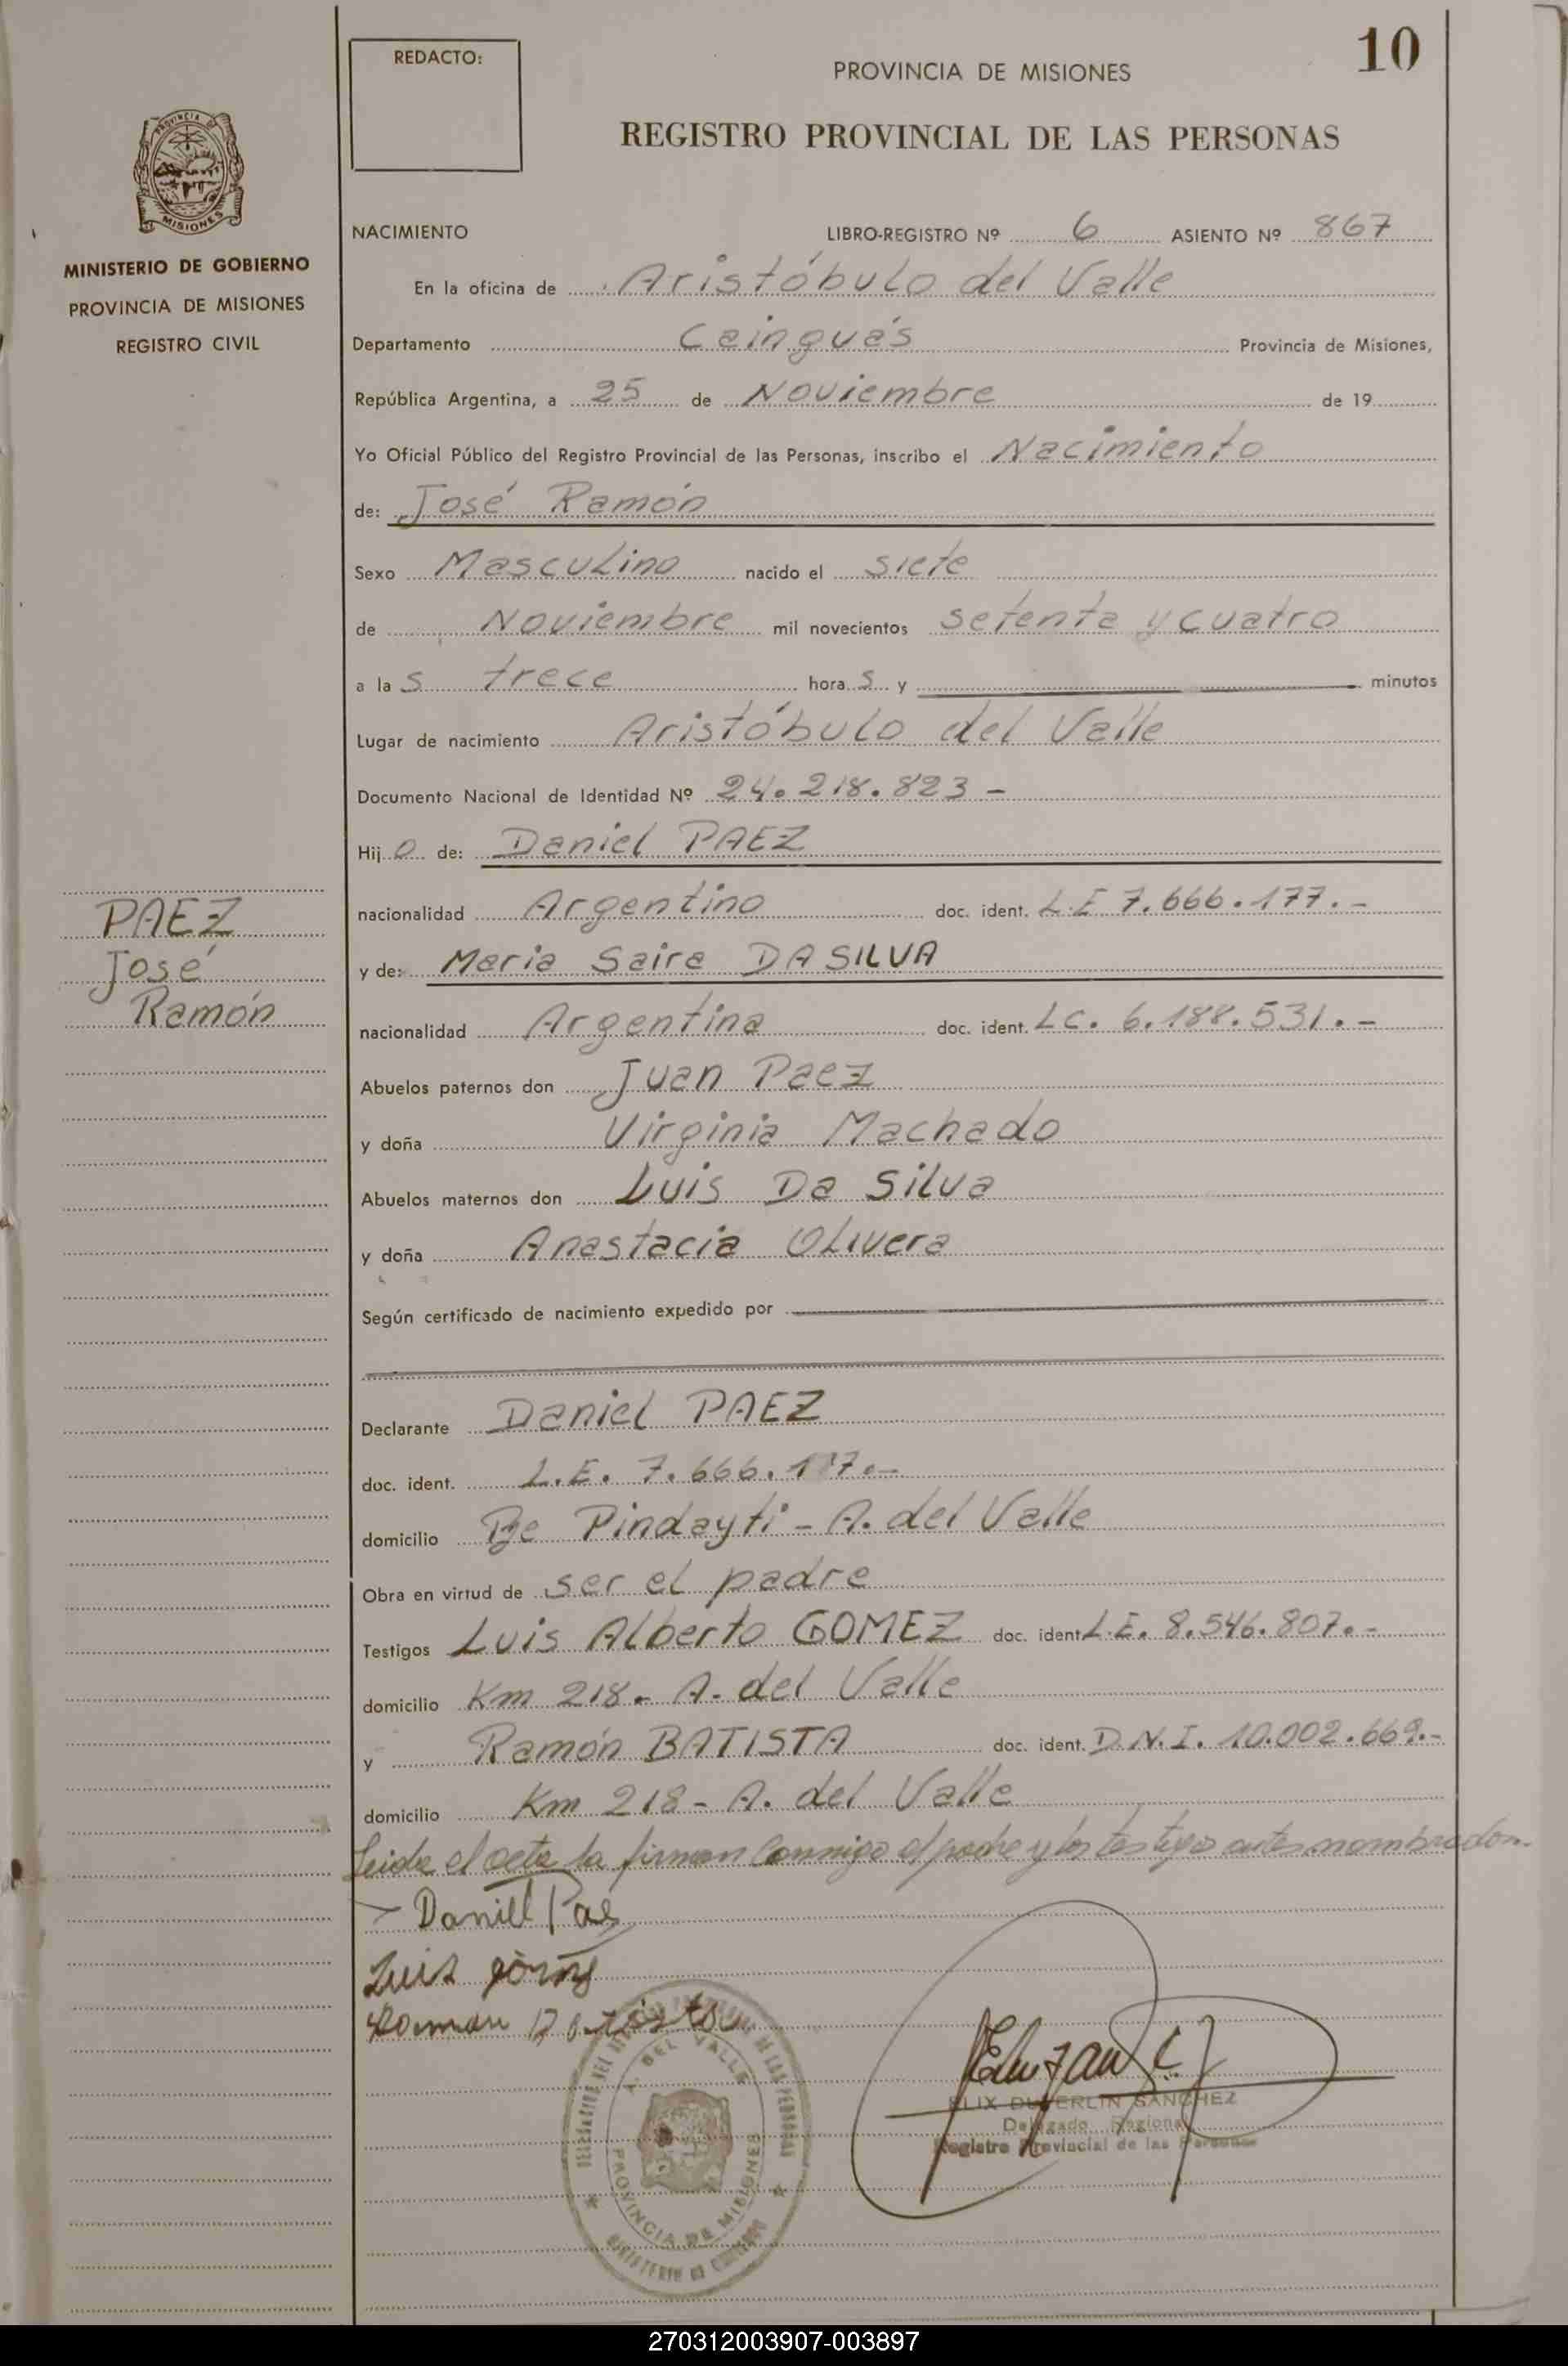 REDACTO:
10
PROVINCIA DE MISIONES
REGISTRO PROVINCIAL DE LAS PERSONAS
PROVINCIA DE
MISIONES
MINISTERIO DE GOBIERNO
PROVINCIA DE MISIONES
REGISTRO CIVIL
NACIMIENTO LIBRO-REGISTRO Nº 6 ASIENTO Nº 867
En la oficina de Aristóbulo del Valle
Departamento Cainguás Provincia de Misiones,
República Argentina, a 25 de Noviembre de 19
Yo Oficial Público del Registro Provincial de las Personas, inscribo el Nacimiento
de: José Ramón
Sexo Masculino nacido el siete
de Noviembre mil novecientos setenta y cuatro
a las trece horas y minutos
Lugar de nacimiento Aristóbulo del Valle
Documento Nacional de Identidad Nº 24.218.823 -
Hijo de: Daniel PAEZ
nacionalidad Argentino doc. ident. L.E 7.666.177.-
y de: Maria Saira DA SILVA
nacionalidad Argentina doc. ident. LC. 6.188.531.-
Abuelos paternos don Juan Paez
y doña Virginia Machado
Abuelos maternos don Luis Da Silva
y doña Anastacia Olivera
Según certificado de nacimiento expedido por
Declarante Daniel PAEZ
doc. ident. L.E. 7.666.177.-
domicilio Pindayti - A. del Valle
Obra en virtud de ser el padre
Testigos Luis Alberto GOMEZ doc. ident L.E. 8.546.807.-
domicilio Km 218- A. del Valle
y Ramón BATISTA doc. ident. D.N.I. 10.002.669.-
domicilio Km 218- A. del Valle
Leida el acta la firman conmigo el padre y los testigo antes nombrados.
PAEZ
José
Ramón
Daniel Pae
Luis
A. DEL VALLE
PROVINCIA DE MISIONES
DE LAS PERSONAS
MINISTERIO DE GOBIERNO
SANCHEZ
Delegado Regional
Registro Provincial de las Personas
270312003907-003897